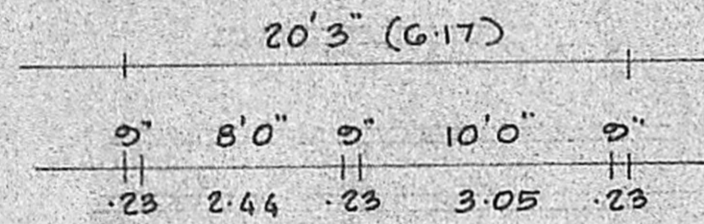 20'3" (6.17)
9" 8'0" 9" 10'0" 9"
.23 2.44 .23 3.05 .23